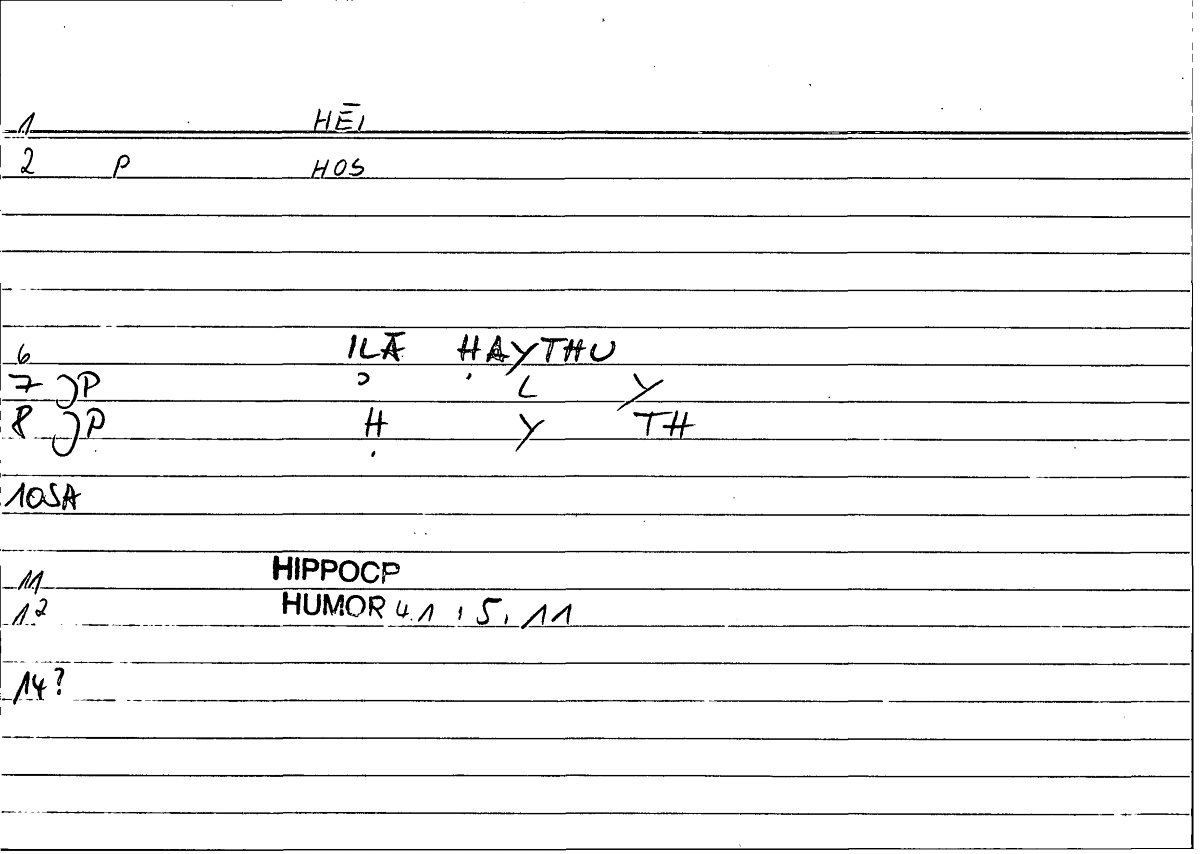 1 HĒI
2 P HOS
6 ILĀ ḤAYTHU
7 JP ʾ L Y
8 JP Ḥ Y TH
10SA
11 HIPPOCP
12 HUMOR 4.1 , 5, 11
14?